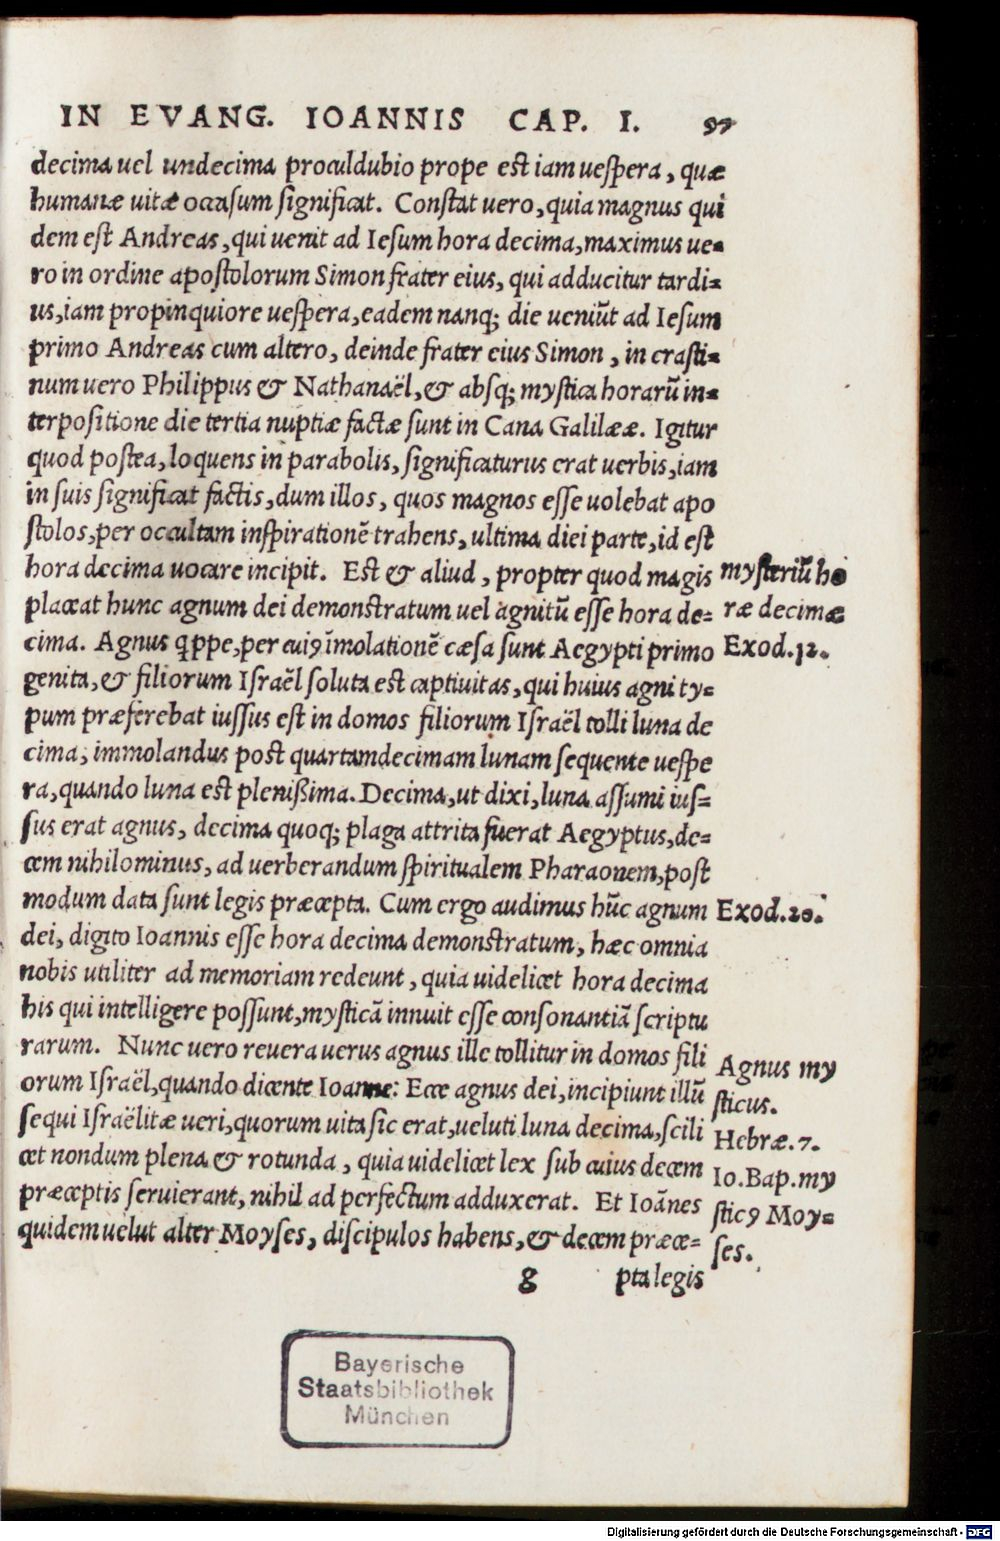 IN EVANG. IOANNIS CAP. I. 97
decima uel undecima proculdubio prope est iam uespera, quæ
humanæ uitæ occasum significat. Constat uero, quia magnus qui
dem est Andreas, qui uenit ad Iesum hora decima, maximus ue-
ro in ordine apostolorum Simon frater eius, qui adducitur tardi-
us, iam propinquiore uespera, eadem nanq; die ueniũt ad Iesum
primo Andreas cum altero, deinde frater eius Simon, in crasti-
num uero Philippus & Nathanaël, & absq; mystica horarũ in-
terpositione die tertia nuptiæ factæ sunt in Cana Galilææ. Igitur
quod postea, loquens in parabolis, significaturus erat uerbis, iam
in suis significat factis, dum illos, quos magnos esse uolebat apo
stolos, per occultam inspirationẽ trahens, ultima diei parte, id est
hora decima uocare incipit. Est & aliud, propter quod magis
placeat hunc agnum dei demonstratum uel agnitũ esse hora de-
cima. Agnus qppe, per cuiꝰ ĩmolationẽ cæsa sunt Aegypti primo
genita, & filiorum Israël soluta est captiuitas, qui huius agni ty-
pum præferebat iussus est in domos filiorum Israël tolli luna de
cima, immolandus post quartamdecimam lunam sequente uespe
ra, quando luna est plenißima. Decima, ut dixi, luna assumi ius-
sus erat agnus, decima quoq; plaga attrita fuerat Aegyptus, de-
cem nihilominus, ad uerberandum spiritualem Pharaonem, post
modum data sunt legis præcepta. Cum ergo audimus hũc agnum
dei, digito Ioannis esse hora decima demonstratum, hæc omnia
nobis utiliter ad memoriam redeunt, quia uidelicet hora decima
his qui intelligere possunt, mysticã innuit esse consonantiã scriptu
rarum. Nunc uero reuera uerus agnus ille tollitur in domos fili
orum Israël, quando dicente Ioanne: Ecce agnus dei, incipiunt illũ
sequi Israëlitæ ueri, quorum uita sic erat, ueluti luna decima, scili
cet nondum plena & rotunda, quia uidelicet lex sub cuius decem
præceptis seruierant, nihil ad perfectum adduxerat. Et Ioãnes
quidem uelut alter Moyses, discipulos habens, & decem præce-
g ptalegis
mysteriũ ho
ræ decimæ
Exod.12.
Exod.20.
Agnus my
sticus.
Hebræ.7.
Io.Bap.my
sticꝰ Moy-
ses.
Bayerische
Staatsbibliothek
München
Digitalisierung gefördert durch die Deutsche Forschungsgemeinschaft - DFG